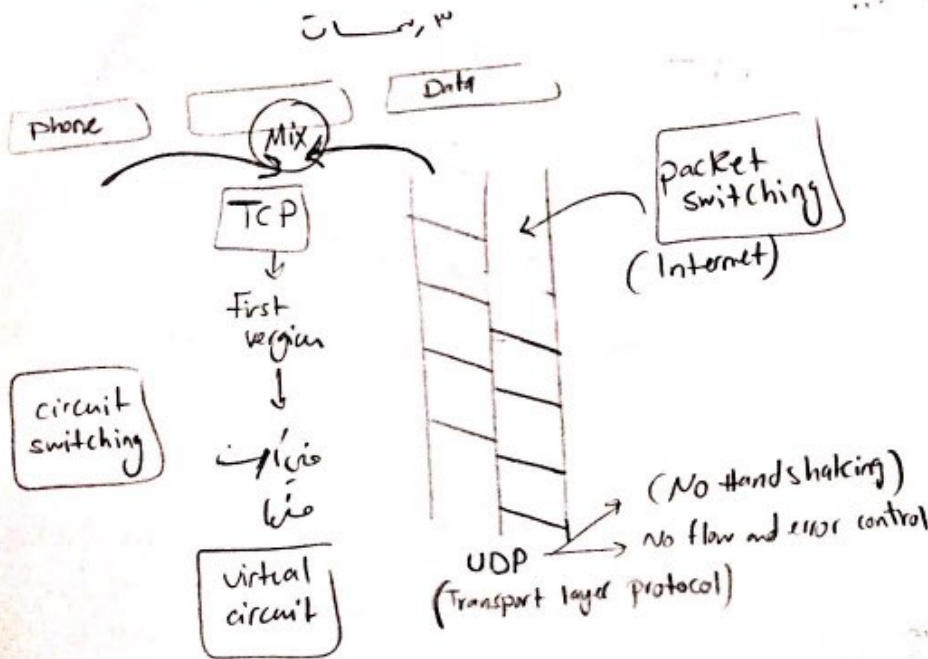 ٣ رسمات
phone
Mix
Data
TCP
packet
switching
(Internet)
First
vergion
circuit
switching
virtual
circuit
UDP
(Transport layer protocol)
(No Handshaking)
No flow and error control